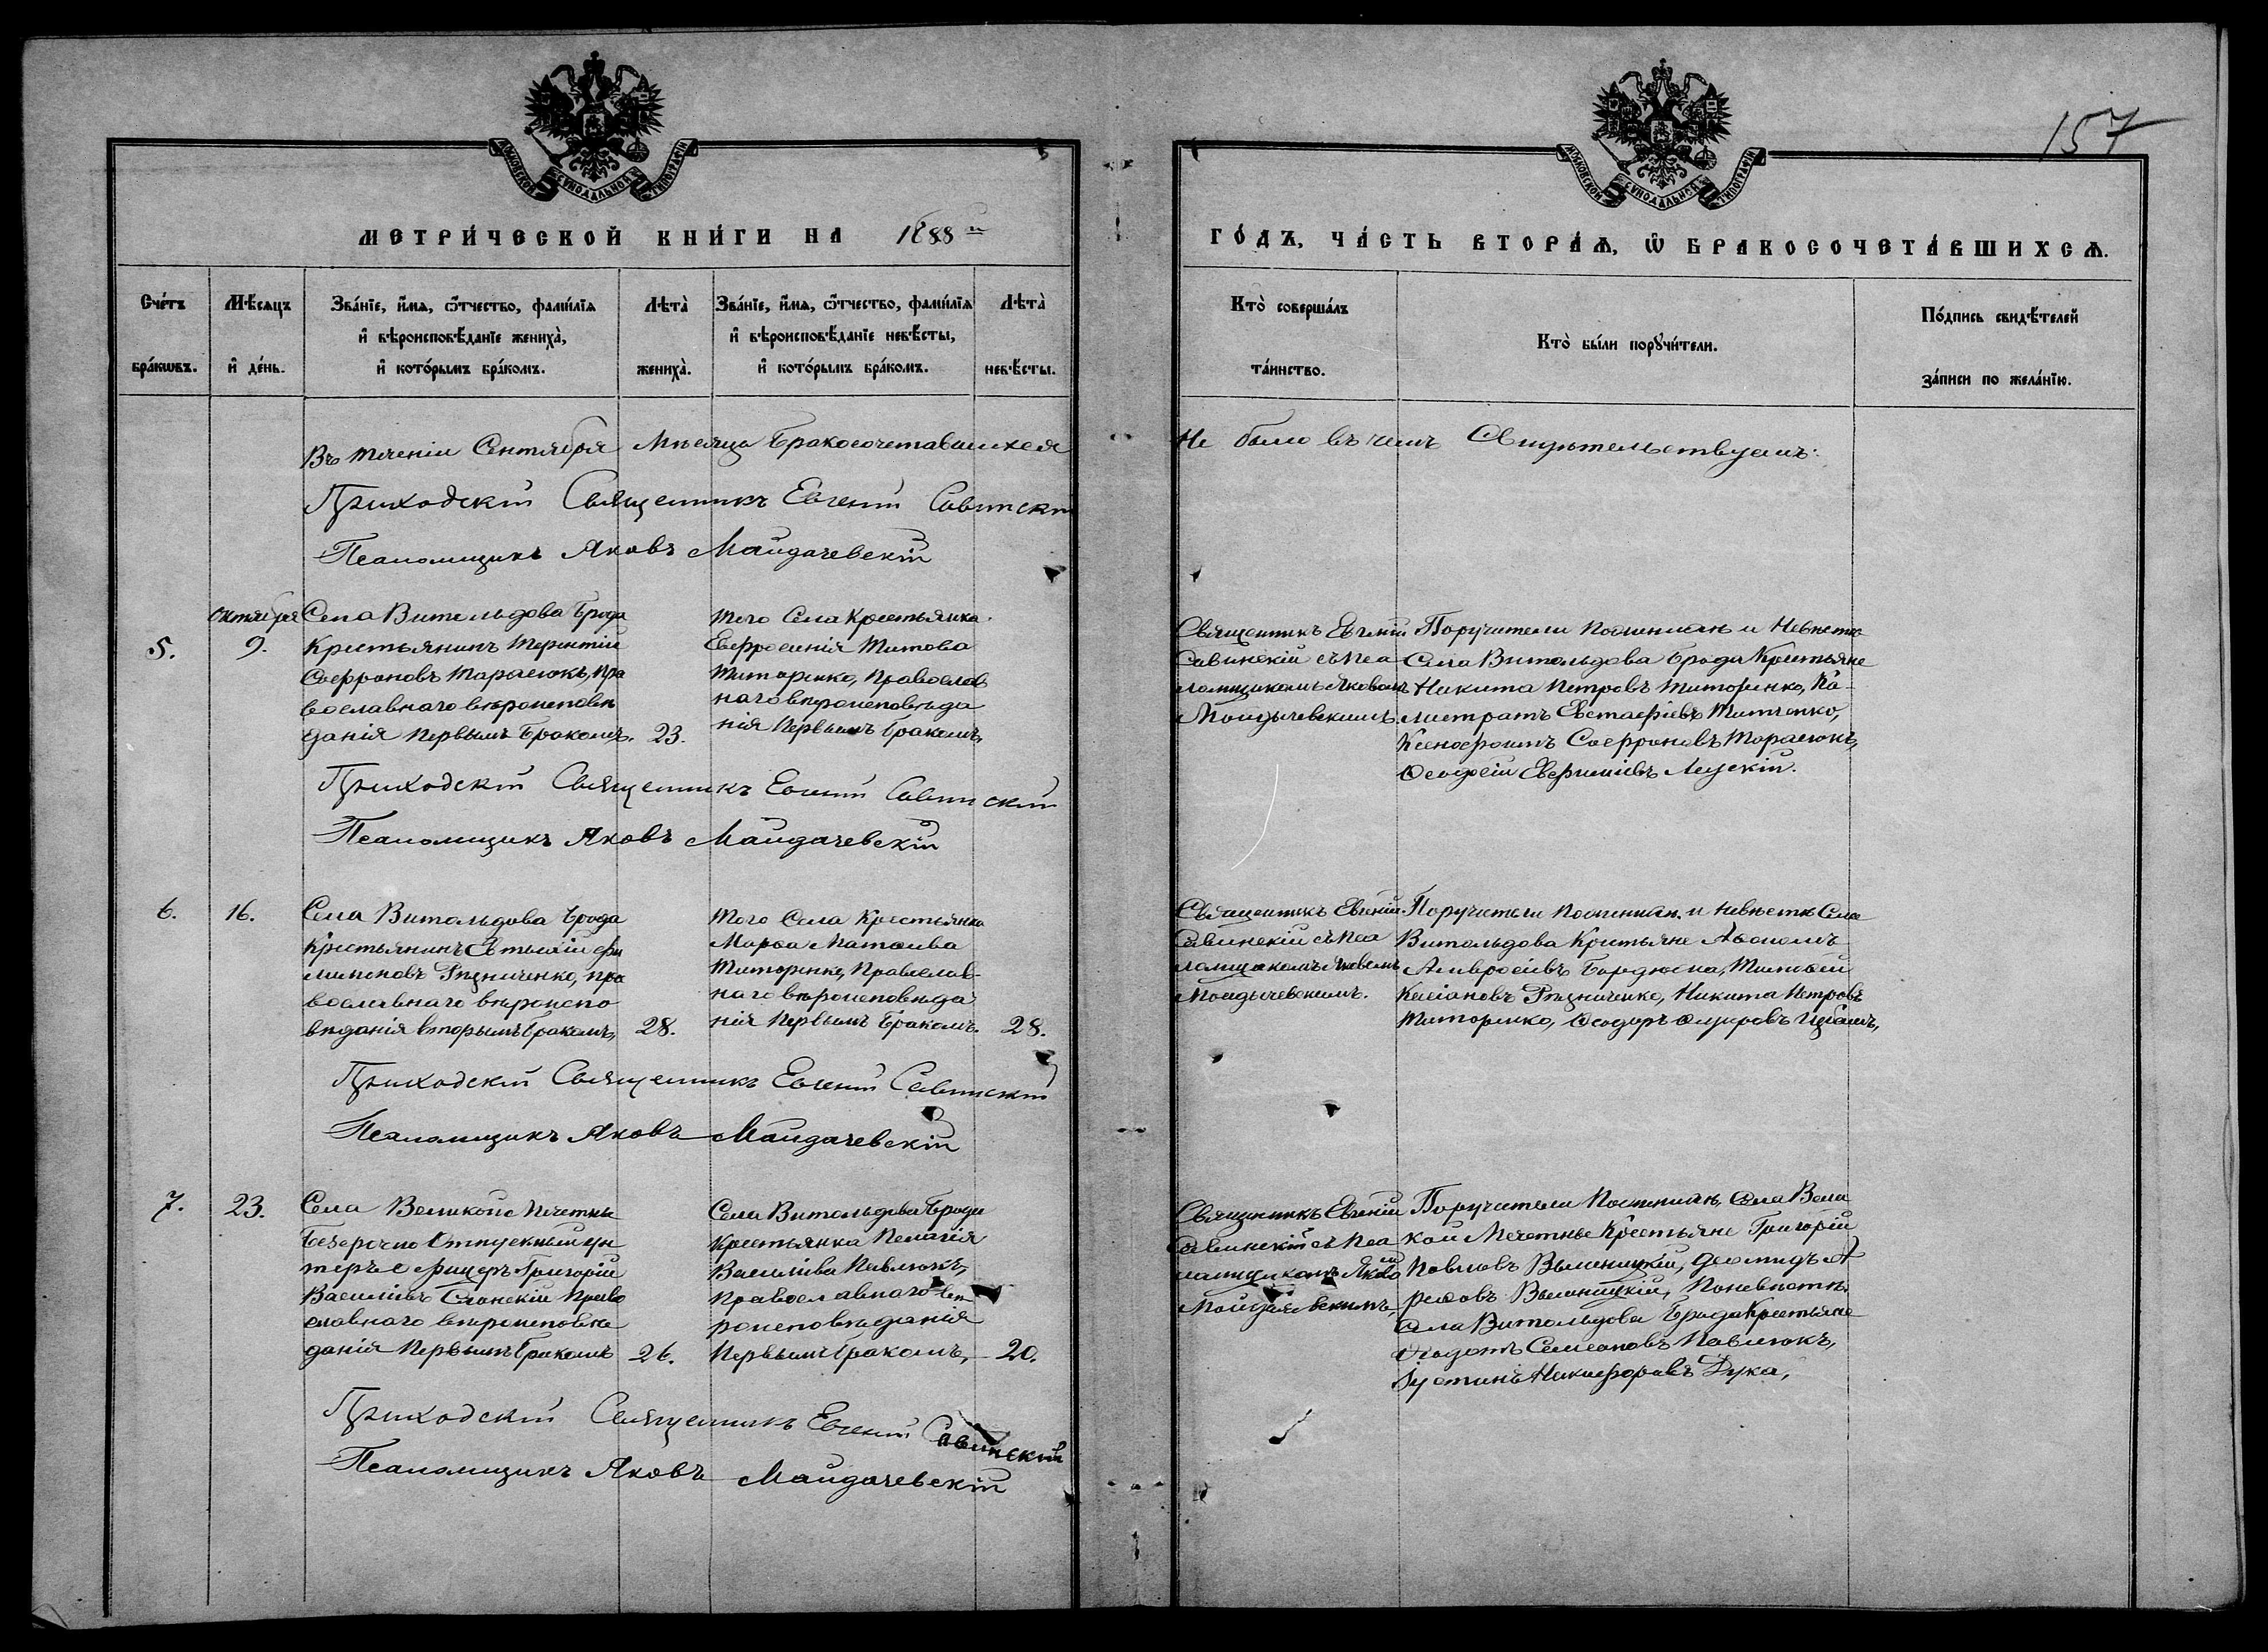 157
МОСКОВСКОЙ СѴНОДАЛЬНОЙ ТИПОГРАФІИ
МОСКОВСКОЙ СѴНОДАЛЬНОЙ ТИПОГРАФІИ
МЕТРИ́ЧЕСКОЙ КНИ́ГИ НА 1888 й
ГО́ДЪ, ЧА́СТЬ ВТОРА́Ѧ, Ѿ БРАКОСОЧЕТА́ВШИХСѦ.
Сче́тъ
бра́кѡвъ.
Мѣ́сяцъ
и҆ де́нь.
Зва́нїе, и҆́мя, ѻ҆́тчество, фами́лїя
и҆ вѣроисповѣ́данїе жениха̀,
и҆ кото́рымъ бра́комъ.
Лѣта̀
жениха̀.
Зва́нїе, и҆́мя, ѻ҆́тчество, фами́лїя
и҆ вѣроисповѣ́данїе невѣ́сты,
и҆ кото́рымъ бра́комъ.
Лѣта̀
невѣ́сты.
Кто̀ соверша́лъ
та́инство.
Кто̀ бы́ли порꙋчи́тели.
По́дпись свидѣ́телей
за́писи по жела́нїю.
Въ теченіи Сентября Мѣсяца Бракосочетавшихся
Не было въ чемъ Свидѣтельствуемъ:
Приходскій Священникъ Евгеній Савинскій
Псаломщикъ Яковъ Майдачевскій
5.
Октября
9.
Села Витольдова Брода
Крестьянинъ Терентій
Софроновъ Тарасюкъ, пра
вославнаго вѣроисповѣ
данія первымъ бракомъ.
23.
того Села Крестьянка
Евфросинія Титова
Титоренко, Православ
наго вѣроисповѣда
нія первымъ бракомъ,
Священникъ Евгеній
Савинскій съ Пса
ломщикомъ Яковомъ
Майдачевскимъ.
Поручители по женихѣ и Невѣстѣ
Села Витольдова Брода Крестьяне
Никита Петровъ Титоренко, Ка-
листратъ Евстафіевъ Титченко,
Ксенофонтъ Софроновъ Тарасюкъ,
Ѳеодосій Евфиміевъ
Приходскій Священникъ Евгеній Савинскій
Псаломщикъ Яковъ Майдачевскій
6.
16.
Села Витольдова Брода
Крестьянинъ Евтихій Фи
липповъ Резниченко, пра
вославнаго вѣроиспо
вѣданія вторымъ бракомъ,
28.
того Села Крестьянка
Марѳа Матѳіева
Титоренко, Православ-
наго вѣроисповѣда
нія первымъ бракомъ.
28.
Священникъ Евгеній
Савинскій съ Пса
ломщикомъ Яковомъ
Майдачевскимъ.
Поручители по женихѣ и невѣстѣ Села
Витольдова Крестьяне
Амвросіевъ Бордюжа, Тимоѳей
Касіановъ Резниченко, Никита Петровъ
Титоренко, Ѳеодоръ
Приходскій Священникъ Евгеній Савинскій
Псаломщикъ Яковъ Майдачевскій
7.
23.
Села Великой Мечетны
Безсрочно отпускный ун
теръ Офицеръ Григорій
Василіевъ Слонскій Право
славнаго вѣроисповѣ
данія первымъ бракомъ
26.
Села Витольдова Брода
Крестьянка Пелагія
Василіева Павлюкъ,
Православнаго вѣ
роисповѣданія
первымъ бракомъ,
20.
Священникъ Евгеній
Савинскій съ Пса
ломщикомъ Яково
мъ
Майдачевскимъ,
Поручители по женихѣ, Села Вели
кой Мечетны Крестьяне Григорій
Павловъ Вышницкій, Діомидъ А
реѳовъ Вышницкій, По невѣстѣ
Села Витольдова Брода Крестьяне
Ѳеодотъ Симеоновъ Павлюкъ,
Іустинъ Никифоровъ Дука,
Приходскій Священникъ Евгеній Савинскій
Псаломщикъ Яковъ Майдачевскій